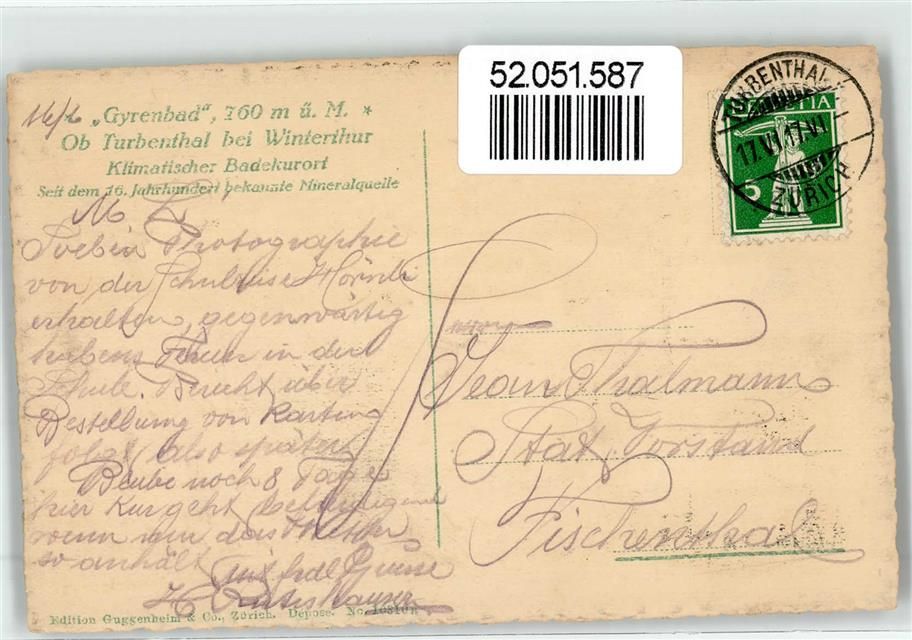 52.051.587
16/6
* „Gyrenbad", 760 m ü. M. *
Ob Turbenthal bei Winterthur
Klimatischer Badekurort
Seit dem 16. Jahrhundert bekannte Mineralquelle
TURBENTHAL
17.VI.17.VI
ZÜRICH
HELVETIA
5
M. L.
Soeben Photographie
von der Schulreise Hörnli
erhalten, gegenwärtig
habens Ferien in der
Schule. Bericht über
Bestellung von Karten
folgt also später
Bleibe noch 8 Tage
hier Kur geht
wenn nun das Wetter
so anhält
mit frdl Grüsse
Herrn
Jean Thalmann
Stat. Vorstand
Fischenthal
Edition Guggenheim & Co., Zürich. Déposé. No.